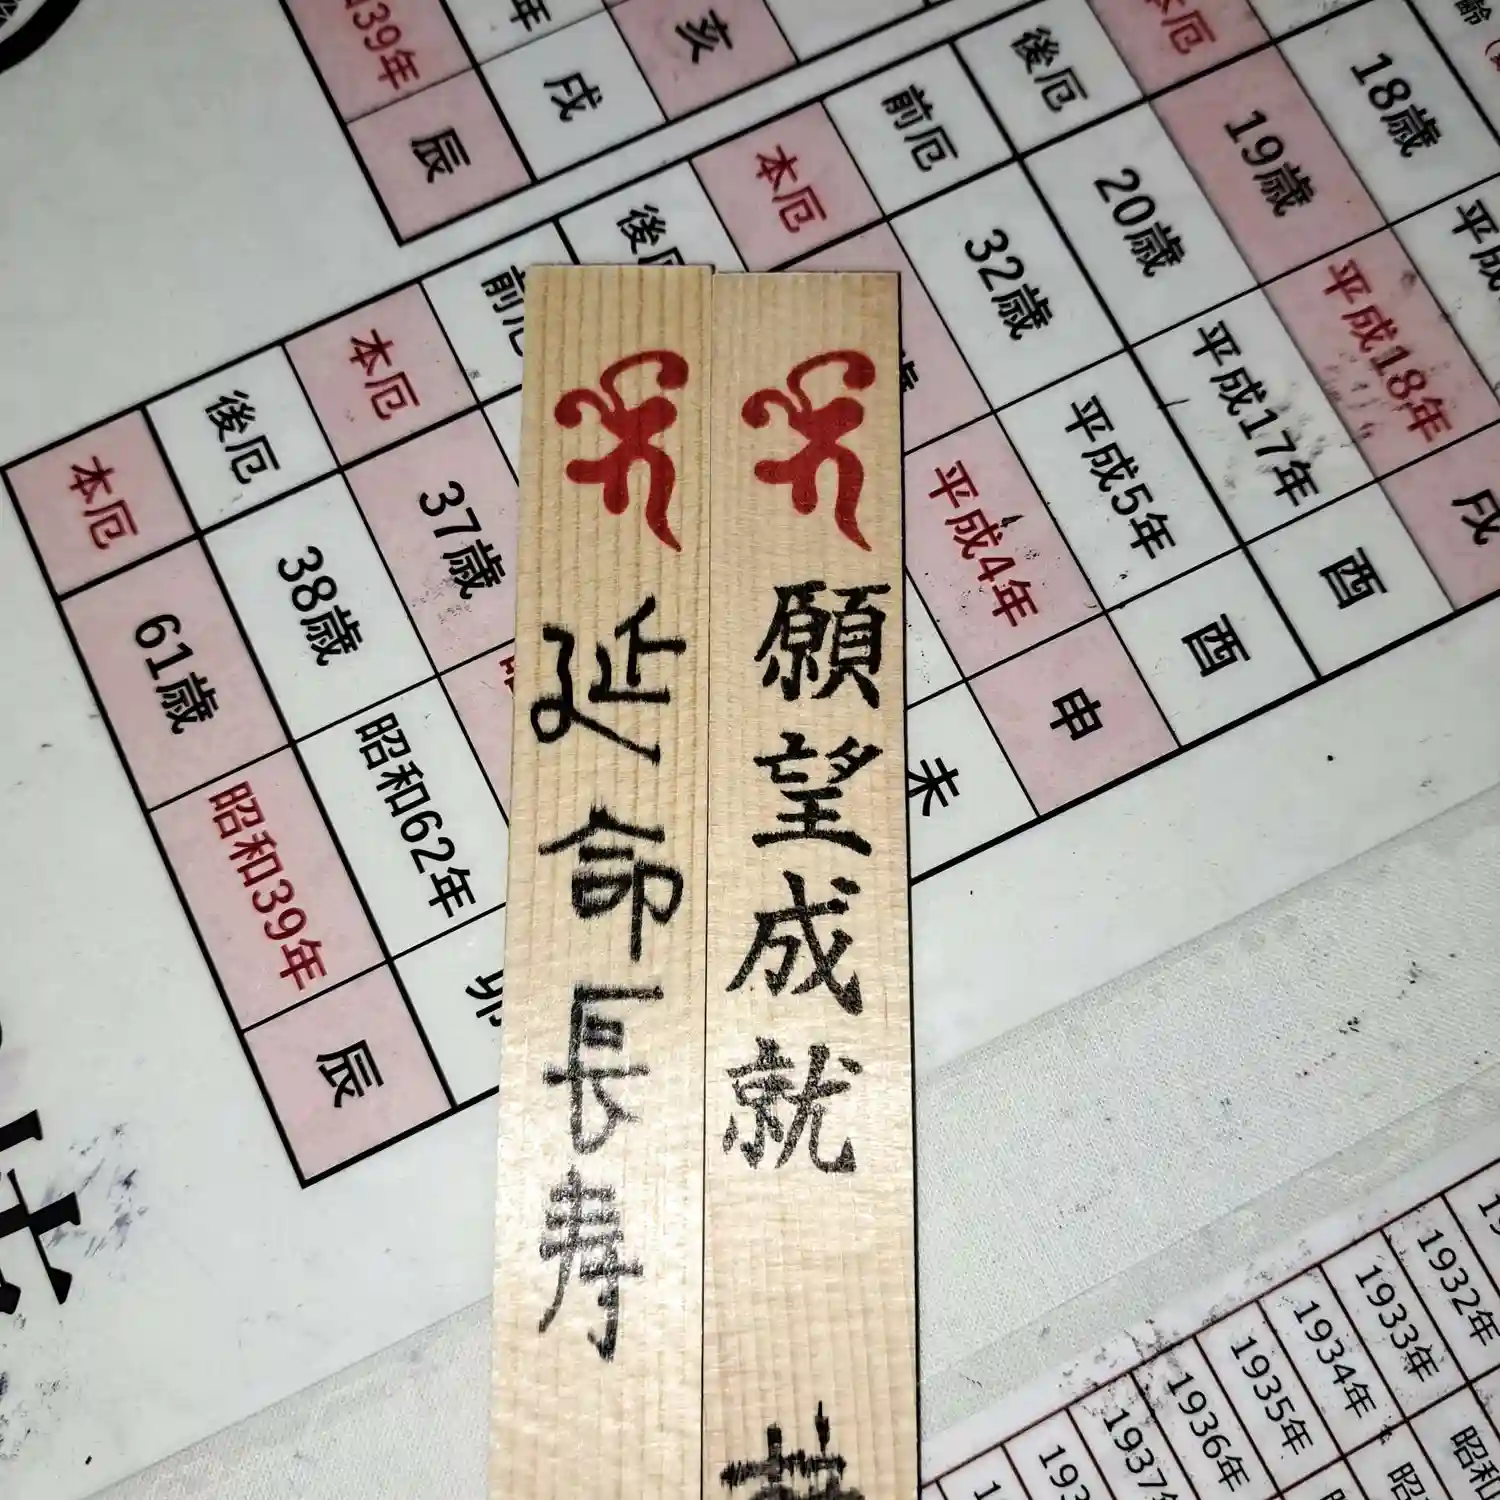 願望成就
延命長寿
本厄
後厄
本厄
後厄
前厄
本厄
後厄
61歳
38歳
37歳
32歳
20歳
19歳
18歳
昭和39年
昭和62年
平成4年
平成5年
平成17年
平成18年
辰
卯
未
申
酉
酉
戌
39年
年
辰
戌
亥
1932年
1933年
1934年
1935年
1936年
1937年